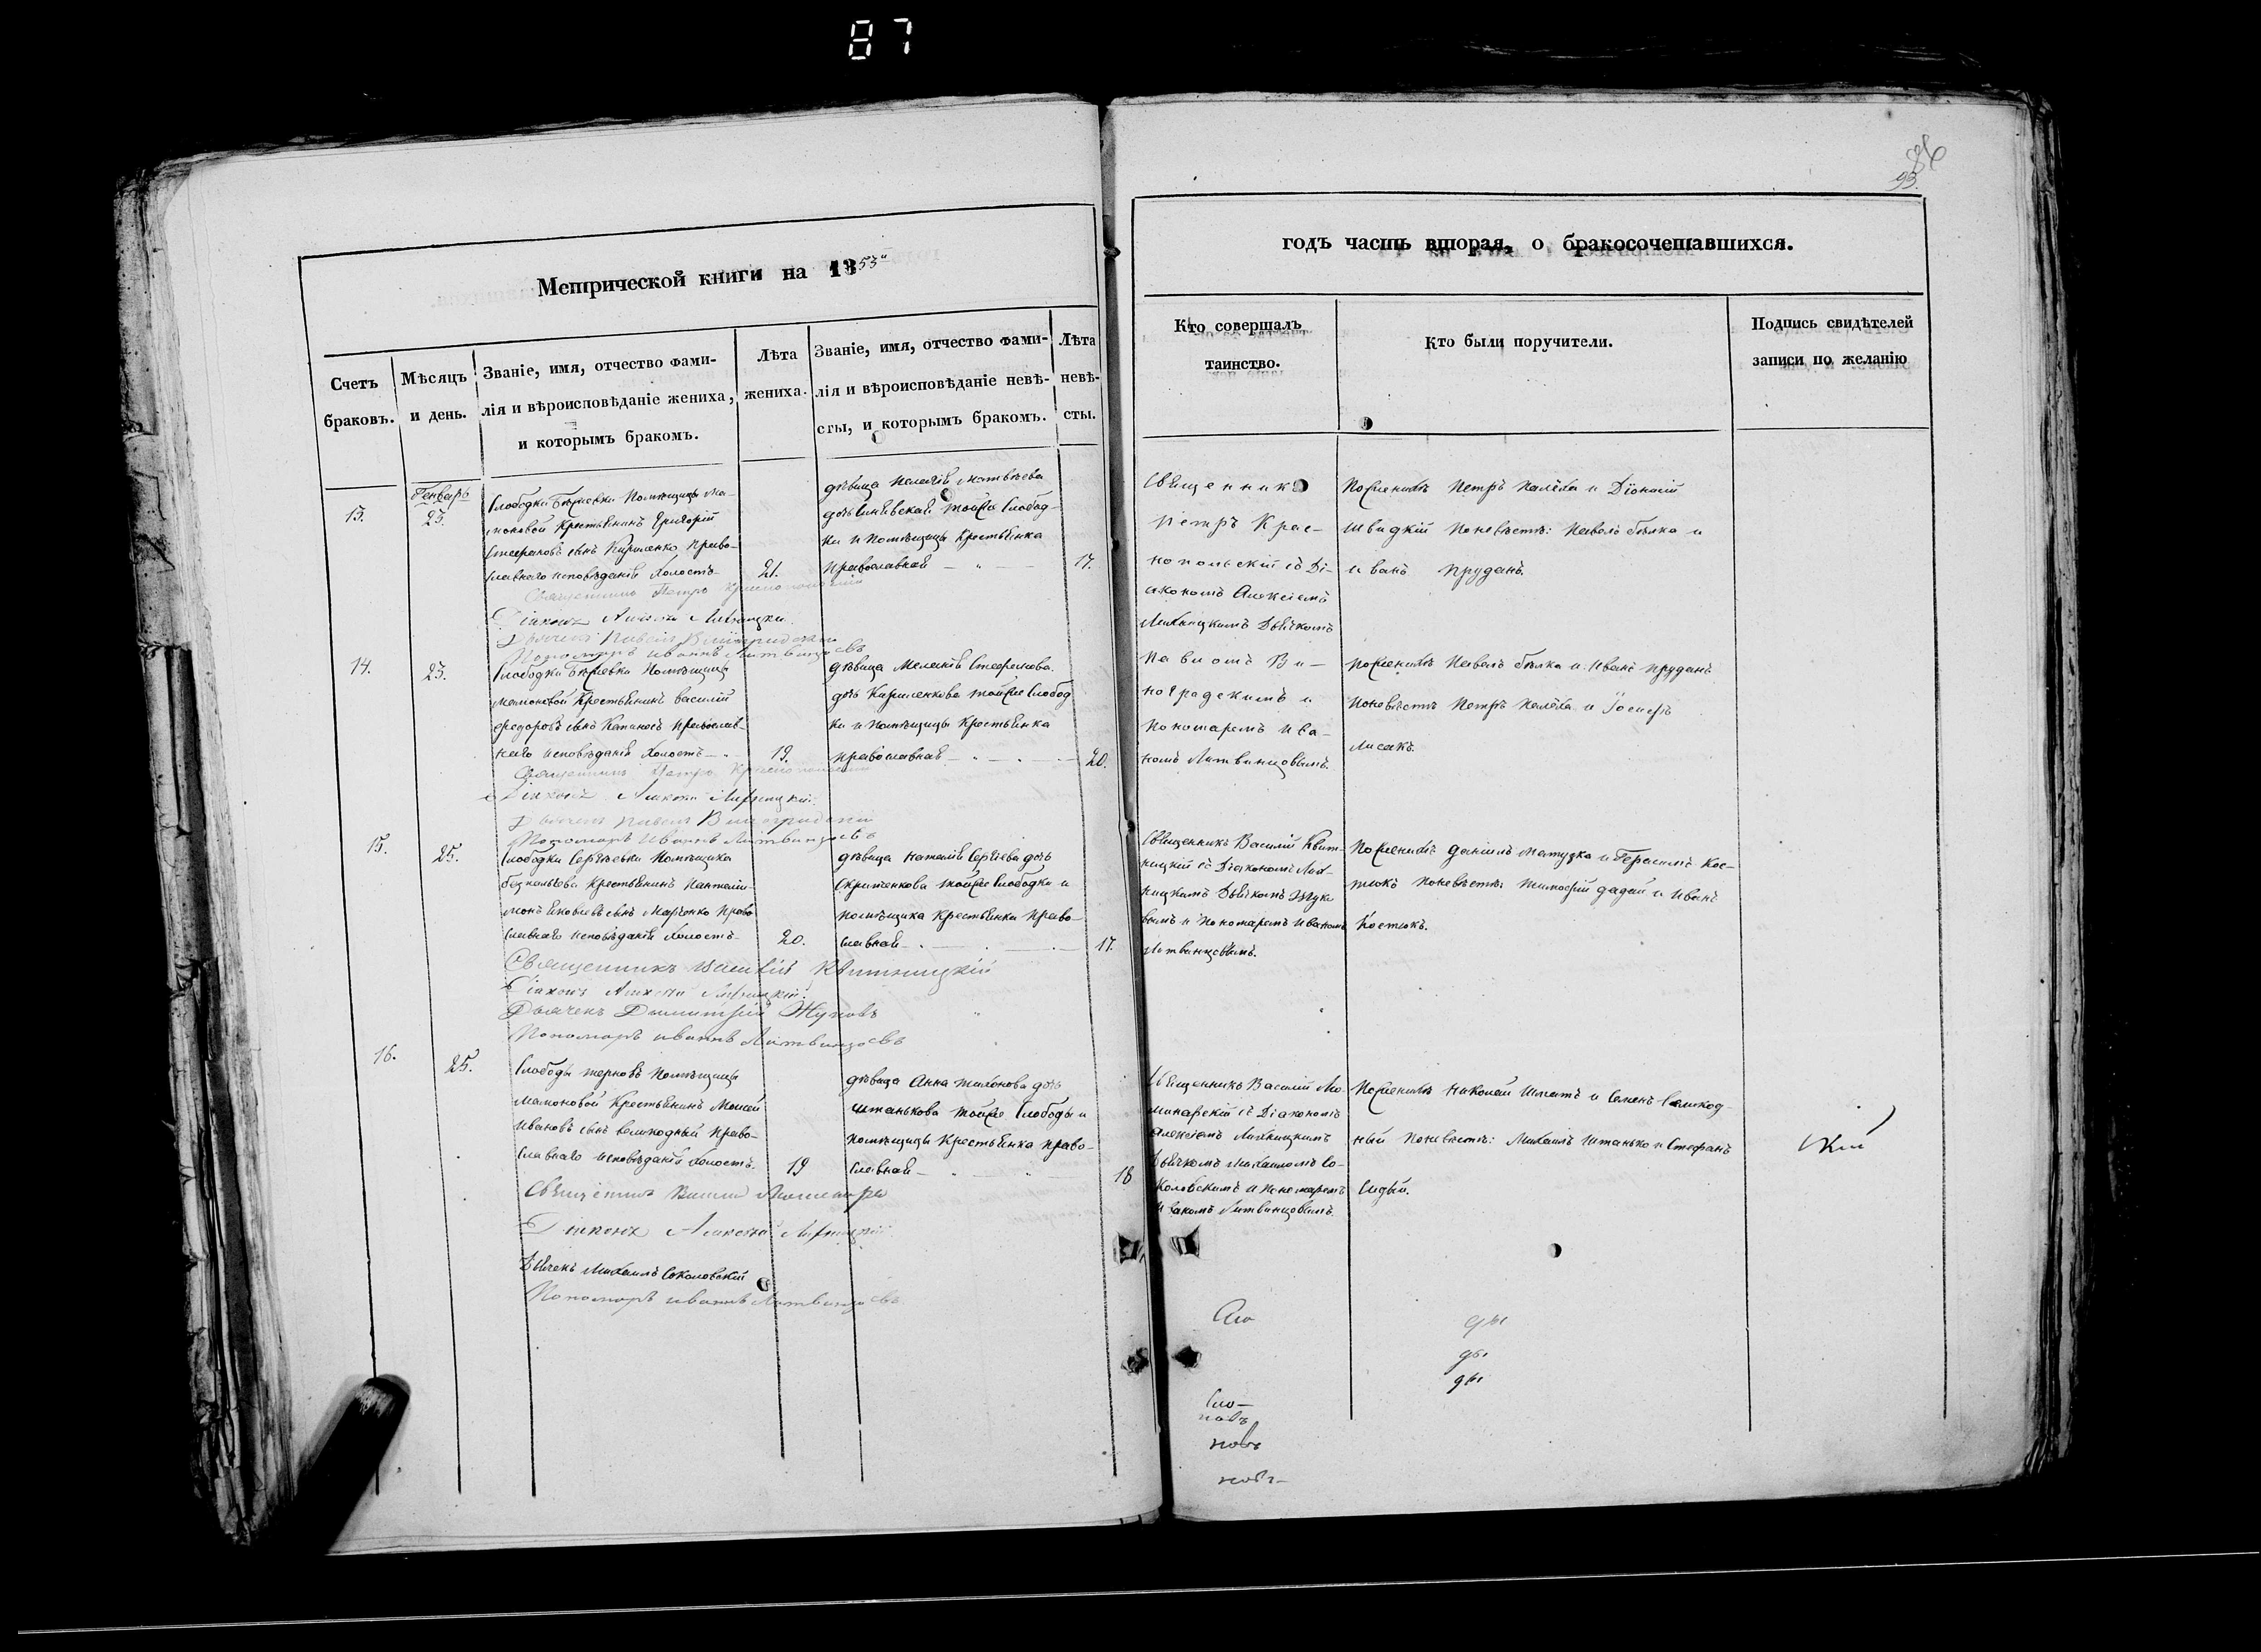 87
86
93.
Метрической книги на 1853й
годъ часть вторая, о бракосочетавшихся.
Счетъ браковъ.
Мѣсяцъ и день.
Званіе, имя, отчество фами-
лія и вѣроисповѣданіе жениха,
и которымъ бракомъ.
Лѣта
жениха.
Званіе, имя, отчество фами-
лія и вѣроисповѣданіе невѣ-
сты, и которымъ бракомъ.
Лѣта
невѣ-
сты.
Кто совершалъ
таинство.
Кто были поручители.
Подпись свидѣтелей
записи по желанію
Генварь
13.
23.
Слободки Помѣщицы Ма-
моновой Крестьянинъ Григорій
Стефановъ сынъ Кириленко Право-
славнаго исповѣданія холостъ
21.
дѣвица Пелагія Матвѣева
дочь той же Слобод-
ки и Помѣщицы Крестьянка
православная
17.
Священникъ
Петръ Крас-
нопольскій съ Ді-
акономъ Алексіемъ
Лихницкимъ Дьячкомъ
Павломъ Ви-
ноградскимъ и
Пономаремъ Ива-
номъ Литвинцовымъ.
По женихѣ Петръ Палѣха и Діонисій
Швидкій По невѣстѣ: Павелъ Бѣлка и
Иванъ Пруданъ.
Священникъ Петръ Краснопольскій
Діаконъ Алексѣй Лихницкій
Дьячекъ Павелъ Виноградскій
Пономарь Иванъ Литвинцовъ
14.
23.
Слободки Помѣщицы
Мамоновой Крестьянинъ Василій
Федоровъ сынъ Православ-
наго исповѣданія холостъ
19.
дѣвица Меланія Стефанова
дочь Кириленкова той же Слобод
ки и Помѣщицы Крестьянка
православная
20.
По женихѣ Павелъ Бѣлка и Иванъ Пруданъ
По невѣстѣ Петръ Палѣха и Іосифъ
Лисакъ.
Священникъ Петръ Краснопольскій
Діаконъ Алексѣй Лихницкій
Дьячекъ Павелъ Виноградскій
Пономарь Иванъ Литвинцовъ
15.
25.
Слободки Сергѣевки Помѣщика
Крестьянинъ Пантелей-
монъ Яковлевъ сынъ Марченко Право
славнаго исповѣданія холостъ
20.
дѣвица Наталія Сергіева дочь
той же Слободки и
помѣщика Крестьянка право-
славная
17.
Священникъ Василій Квит-
ницкій съ Діакономъ Лих-
ницкимъ Дьячкомъ Жуко
вымъ и Пономаремъ Иваномъ
Литвинцовымъ.
По женихѣ Даніилъ Матузка и Герасимъ Кос-
тюкъ По невѣстѣ: Тимофій Дадай и Иванъ
Костюкъ.
Священникъ Василій Квитницкій
Діаконъ Алексѣй Лихницкій
Дьячекъ Димитрій Жуковъ
Пономарь Иванъ Литвинцовъ
16.
25.
Слободы Терновъ Помѣщицы
Мамоновой Крестьянинъ Моисей
Ивановъ сынъ Великодный Право-
славнаго исповѣданія холостъ.
19
дѣвица Анна Тихонова дочь
Штанькова той же Слободы и
помѣщицы Крестьянка право-
славная
18
Священникъ Василій
съ Діакономъ
Алексіемъ Лихницкимъ
Дьячкомъ Михаиломъ Со-
коловскимъ и Пономаремъ
Иваномъ Литвинцовымъ.
По женихѣ Николай Шматъ и Семенъ Великод-
ный По невѣстѣ: Михаилъ Штанько и Стефанъ
Сидый.
Священникъ Василій
Діаконъ Алексѣй Лихницкій
Дьячекъ Михаилъ Соколовскій
Пономарь Иванъ Литвинцовъ
ды
ды
ды
Сло-
новъ
новъ
новъ-